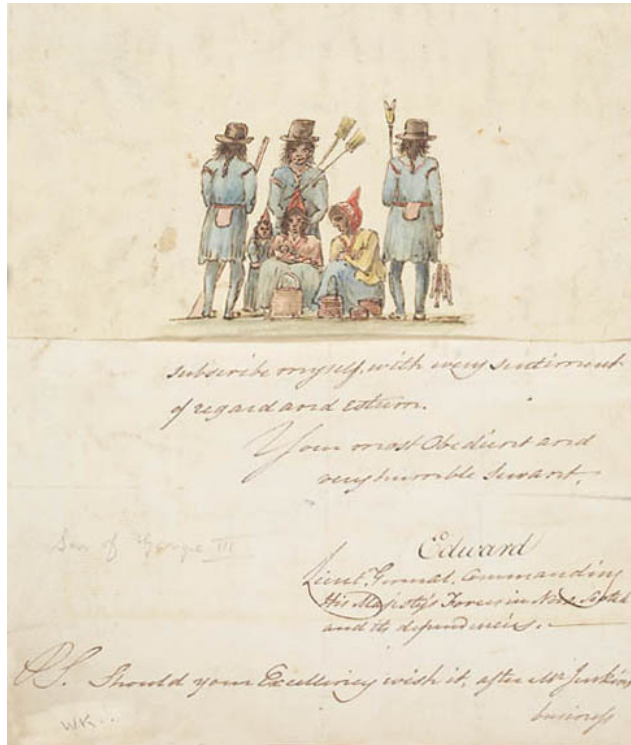 subscribe myself, with every sentiment
of regard and esteem.
Your most Obedient and
very humble Servant,
Son of George III
Edward
Lieut. General. Commanding
His Majesty's Forces in Nova Scotia
and its dependencies.
P.S. Should your Excellency wish it, after Mr Jenkins
business
WK...